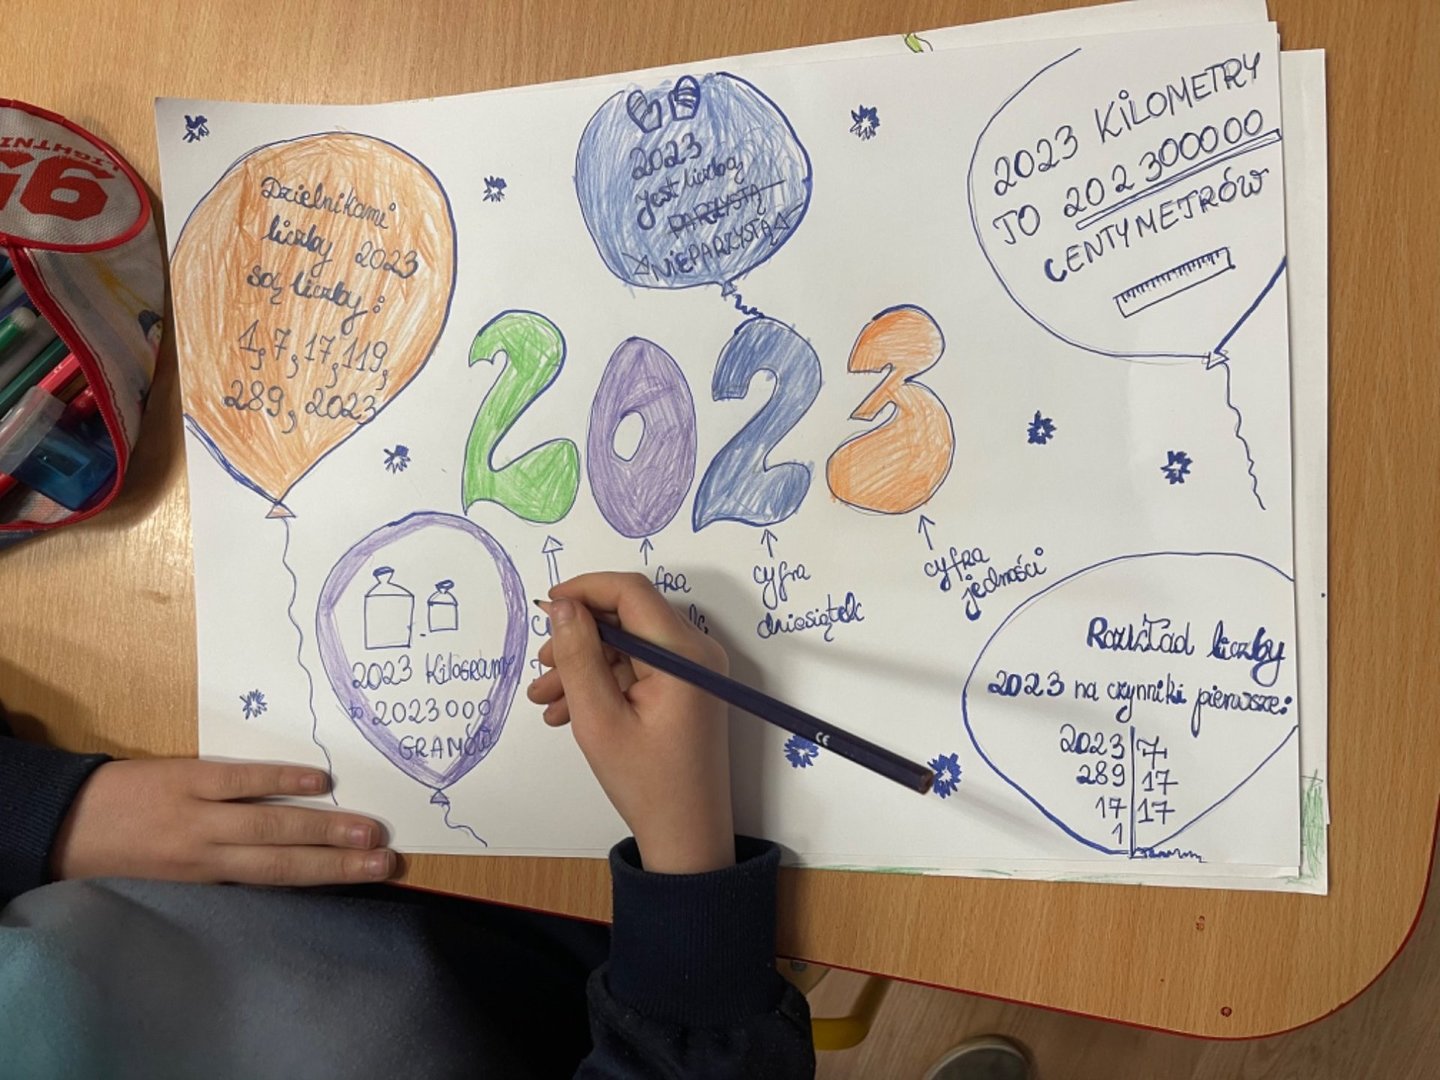 Dzielnikami
liczby 2023
są liczby:
1, 7, 17, 119,
289, 2023
2023
jest liczbą
PARZYSTĄ
NIEPARZYSTĄ
2023 KILOMETRY
TO 202300000
CENTYMETRÓW
2023
cyfra
dziesiątek
cyfra
jedności
2023 Kilogramy
to 2023000
GRAMÓW
Rozkład liczby
2023 na czynniki pierwsze:
2023 7
289 17
17 17
1
95
CE